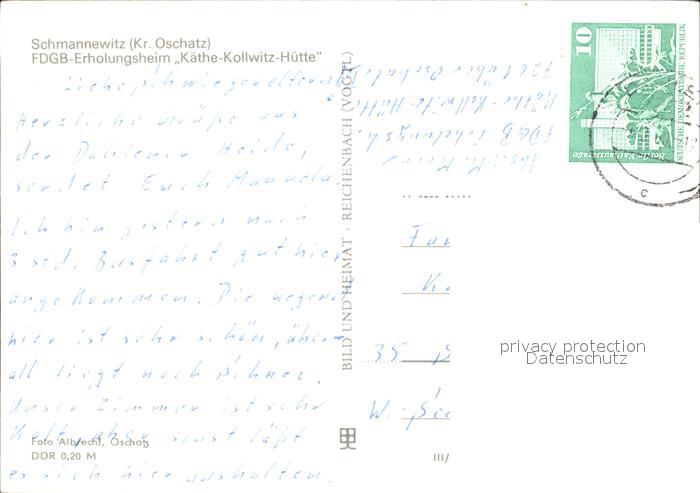 Schmannewitz (Kr. Oschatz)
FDGB-Erholungsheim „Käthe-Kollwitz-Hütte"
Liebe Schwiegereltern
Herzliche Grüße aus
der Dahlener Heide,
sendet Euch Manuela.
Ich bin gestern nach
3 std. Busfahrt gut hier
angekommen. Die Gegend
hier ist sehr schön, über-
all liegt noch Schnee.
Unser Zimmer ist sehr
Kalt, aber sonst läßt
es sich hier aushalten.
Foto Albrecht, Oschatz
DDR 0,20 M
BILD UND HEIMAT · REICHENBACH (VOGTL)
Abs: M.
FDGB Erholungsh.
Käthe-Kollwitz-Hütte
7261 über Oschatz
10
DEUTSCHE DEMOKRATISCHE REPUBLIK
Berlin-Rathausstraße
c
Fam
35
W.-
III/
privacy protection
Datenschutz